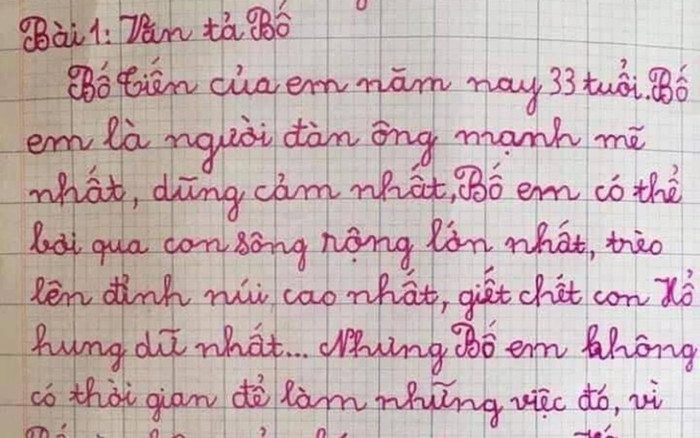 Bài 1: Văn tả Bố
Bố Tiến của em năm nay 33 tuổi. Bố
em là người đàn ông mạnh mẽ
nhất, dũng cảm nhất, Bố em có thể
bơi qua con sông rộng lớn nhất, trèo
lên đỉnh núi cao nhất, giết chết con Hổ
hung dữ nhất... Nhưng Bố em không
có thời gian để làm những việc đó, vì